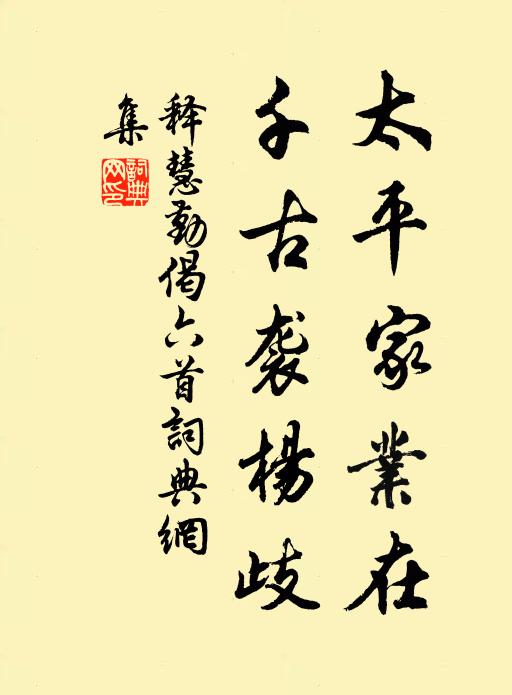 太平家業在
千古袭楊歧
释慧勤偈六首詞典網
集
詞典網印